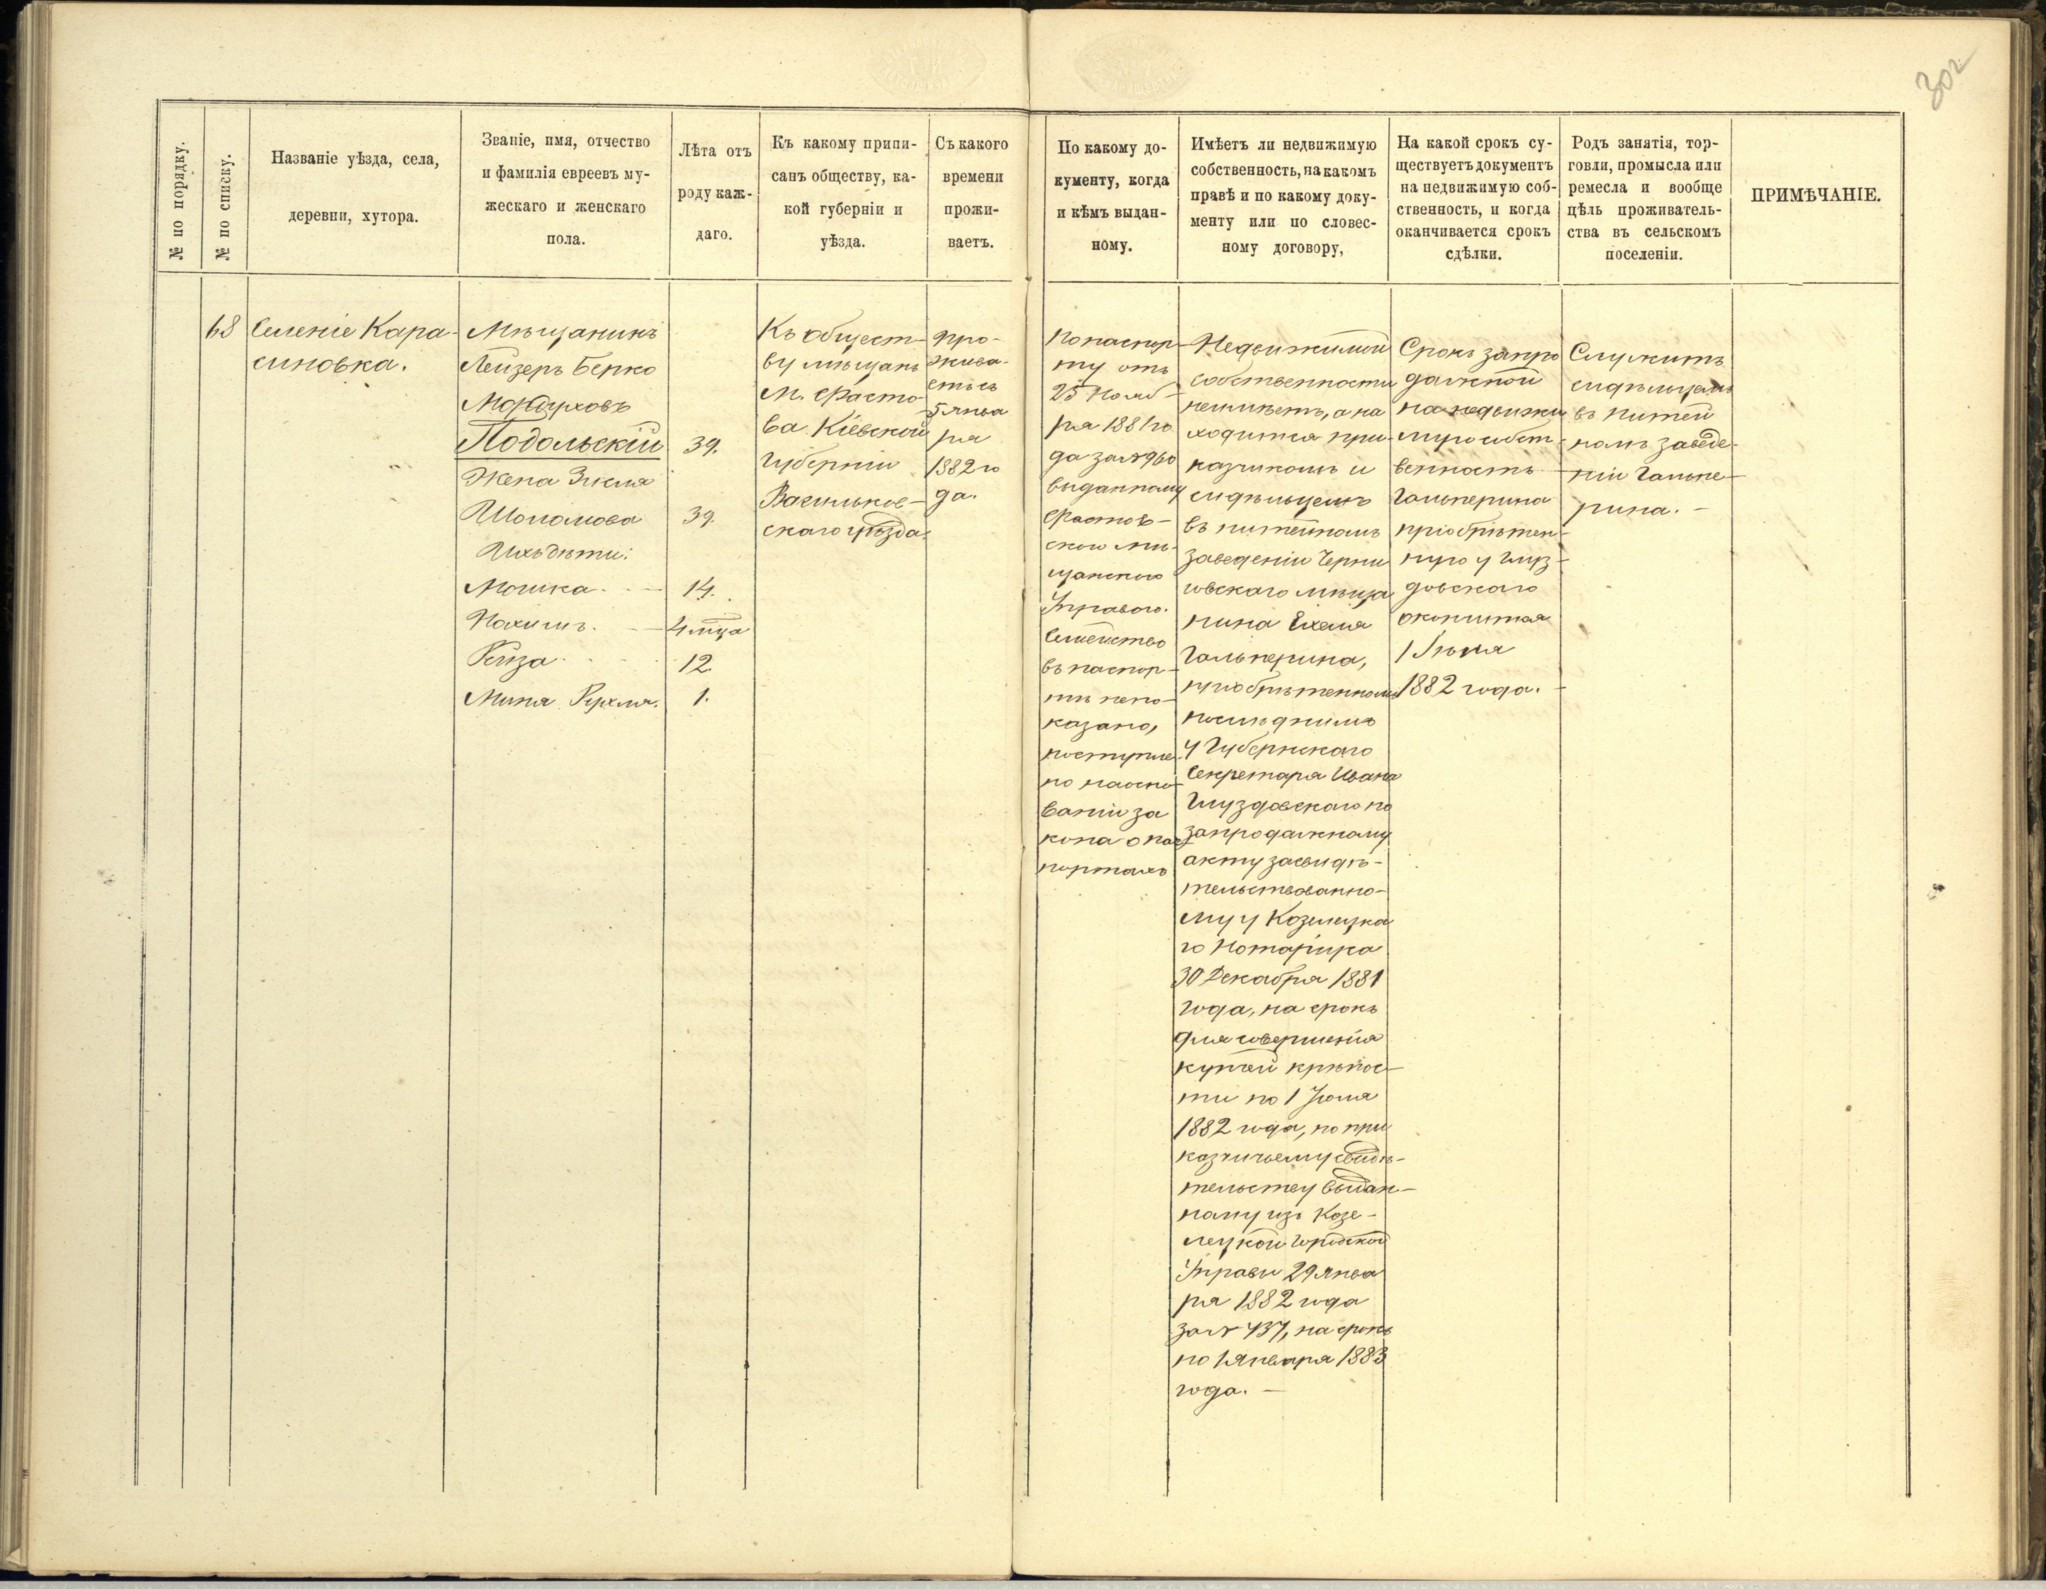 302
№ по порядку.
№ по списку.
Названіе уѣзда, села,
деревни, хутора.
Званіе, имя, отчество
и фамилія евреевъ му-
жескаго и женскаго
пола.
Лѣта отъ
роду каж-
даго.
Къ какому припи-
санъ обществу, ка-
кой губерніи и
уѣзда.
Съ какого
времени
прожи-
ваетъ.
По какому до-
кументу, когда
и кѣмъ выдан-
ному.
Имѣетъ ли недвижимую
собственность, на какомъ
правѣ и по какому доку-
менту или по словес-
ному договору,
На какой срокъ су-
ществуетъ документъ
на недвижимую соб-
ственность, и когда
оканчивается срокъ
сдѣлки.
Родъ занятія, тор-
говли, промысла или
ремесла и вообще
цѣль проживатель-
ства въ сельскомъ
поселеніи.
ПРИМѢЧАНІЕ.
68
Селеніе Кара-
синовка.
Мѣщанинъ
Лейзеръ Берко
Мордуховъ
Подольскій
Жена Зисля
Шоломова
Ихъ дѣти:
Мошка
Нахимъ.
Рейза
Миня Рухля.
39.
39.
14.
4 мѣца
12.
1.
Къ общест-
ву мѣщанъ
м. Фасто-
ва Кіевской
Губерніи
Васильков-
скаго уѣзда.
Про-
жива-
етъ съ
5 Янва
ря
1882 го
да.
По паспор-
ту отъ
25 Нояб-
ря 1881 го
да за № 960
выданному
Фастов-
ской Мѣ-
щанской
Управой.
Семейство
въ паспор-
тѣ непо-
казано,
поступле-
но на осно-
ваніи за
кона о пас-
портахъ
Недвижимой
собственности
неимѣетъ, а на
ходится при-
казчикомъ и
сидѣльцемъ
въ питейномъ
заведеніи Черни
говскаго мѣща
нина Ехеля
Гальперина,
пріобрѣтенномъ
послѣднимъ
у Губернскаго
Секретаря Ивана
Глуздовскаго по
запродажному
акту засвидѣ-
тельствованно-
му у Козелецка
го Нотаріуса
30 Декабря 1881
года, на срокъ
для совершенія
купчей крѣпос-
ти по 1 Іюля
1882 года, по при
казчичьему свидѣ-
тельству выдан-
ному изъ Козе-
лецкой Городской
Управы 29 Янва
ря 1882 года
за № 437, на срокъ
по 1 Января 1883
года. —
Срокъ запро
дажной
на недвижи
мую собст-
венность
Гальперина
пріобрѣтен-
ную у Глуз-
довскаго
окончится
1 Іюля
1882 года. —
Служитъ
сидѣльцемъ
въ питей
номъ заведе-
ніи Гальпе-
рина. —